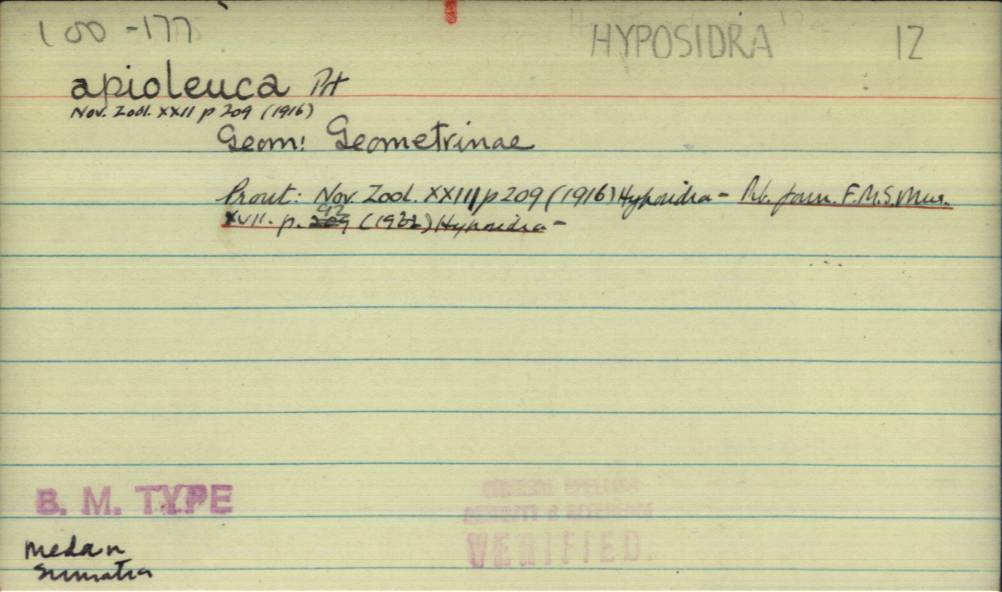 100-177 HYPOSIDRA 12
apioleuca Prt
Nov. Zool. XXII p 209 (1916)
Geom: Geometrinae
Prout: Nov. Zool. XXIII p 209 (1916) Hyposidra - Id. Journ. F.M.S. Mus.
XVII. p. 92 (1932) Hyposidra -
B. M. TYPE
VERIFIED.
Medan
Sumatra